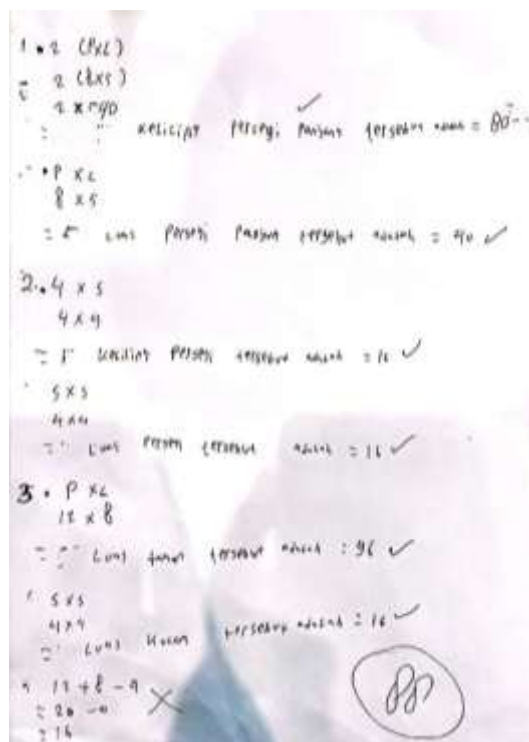 1. 2 (PxL)
2 (8x5)
2 x 40
= Keliling persegi panjang tersebut adalah = 80
P x L
8 x 5
= Luas persegi panjang tersebut adalah = 40
2. 4 x s
4 x 4
= Keliling persegi tersebut adalah = 16
s x s
4 x 4
= Luas persegi tersebut adalah = 16
3. P x L
12 x 8
= Luas taman tersebut adalah = 96
s x s
4 x 4
= Luas kolam tersebut adalah = 16
12 + 8 - 4
= 20 - 4
= 16
88